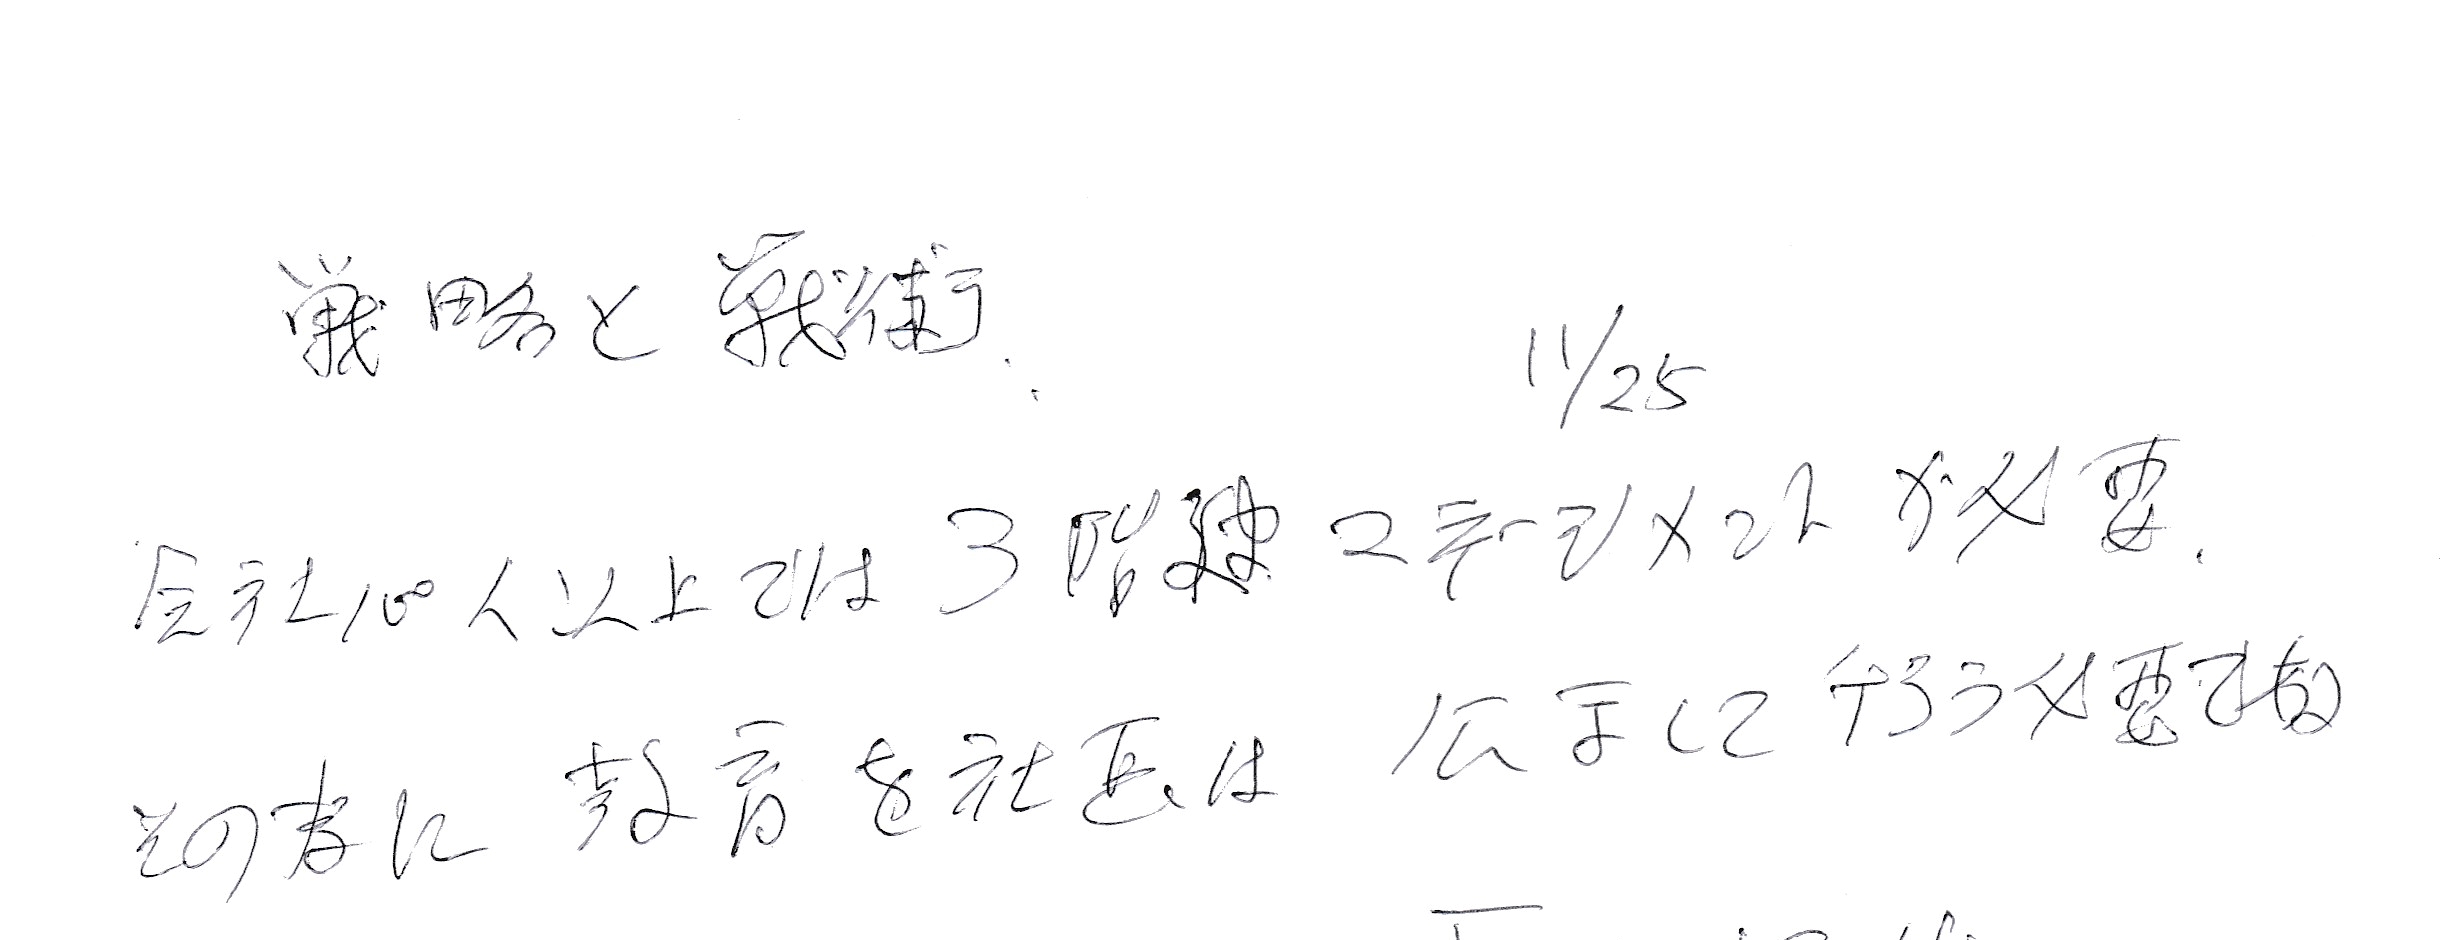 戦略と戦術.
11/25
会社100人以上では3階級マネージメントが必要.
その為に教育を社長は して行う必要で有